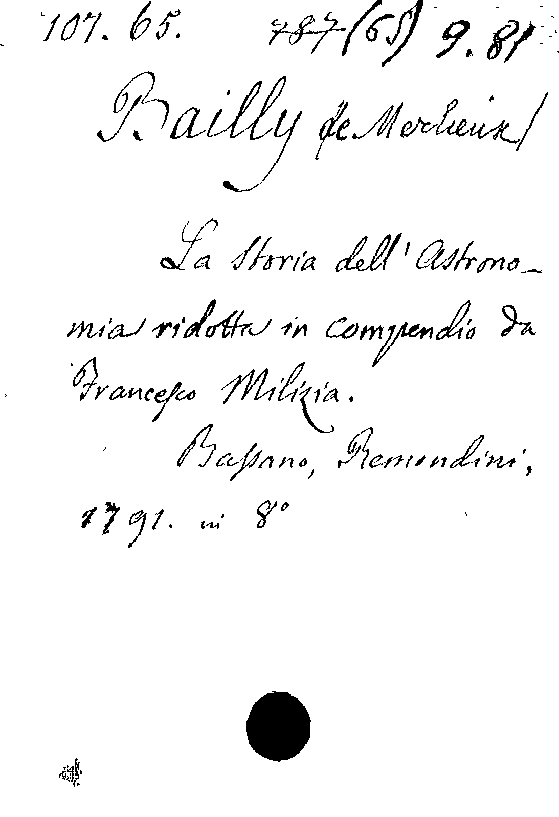 107. 65. 787 (65) 9. 81
Bailly (de Merlieux)
La Storia dell' Astrono-
mia ridotta in compendio da
Francesco Milizia.
Bassano, Remondini,
1791. in 8°